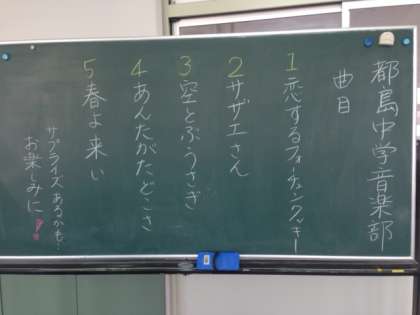 都島中学音楽部
曲目
1 恋するフォーチュンクッキー
2 サザエさん
3 空とぶうさぎ
4 あんたがたどこさ
5 春よ来い
サプライズあるかも…
お楽しみに!